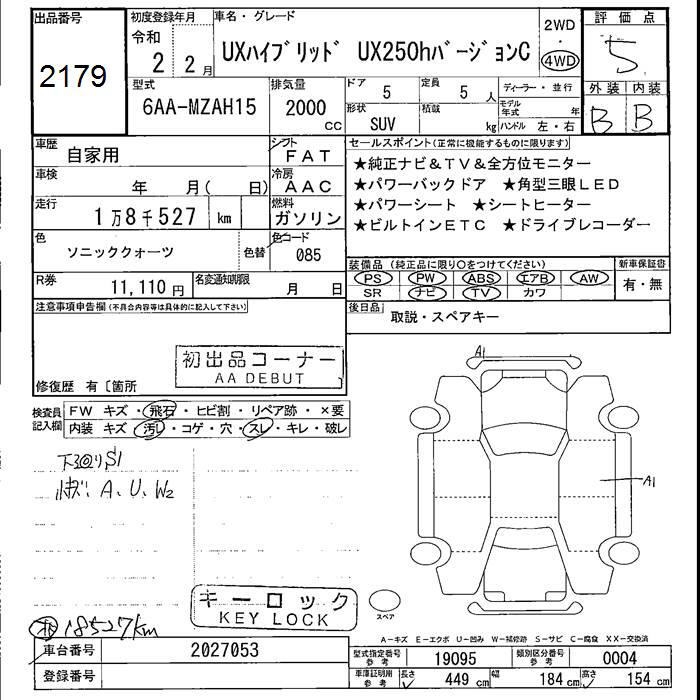 出品番号
2179
初度登録年月
令和
2 2月
車名・グレード
UXハイブリッド UX250hバージョンC
2WD
・
4WD
評価点
5
外装 内装
B B
型式
6AA-MZAH15
排気量
2000
cc
ドア
5
定員
5 人
ディーラー・並行
形状
SUV
積載
kg
モデル年式 年
ハンドル 左・右
車歴
自家用
シフト
FAT
車検
年 月( 日)
冷房
AAC
走行
1万8千527 km
燃料
ガソリン
色
ソニッククォーツ
色替
色コード
085
R券
11,110円
名変通知期限
月 日
セールスポイント(正常に機能するものに限ります)
★純正ナビ&TV&全方位モニター
★パワーバックドア ★角型三眼LED
★パワーシート ★シートヒーター
★ビルトインETC ★ドライブレコーダー
装備品(純正品に限り○をつけてください)
PS PW ABS エアB AW
SR ナビ TV カワ
新車保証書
有・無
後日品
取説・スペアキー
注意事項申告欄(不具合内容等は具体的に記入して下さい)
初出品コーナー
AA DEBUT
修復歴 有〔箇所
検査員
記入欄
FW キズ・飛石・ヒビ割・リペア跡・×要
内装 キズ・汚レ・コゲ・穴・スレ・キレ・破レ
下回りS1
A、U、W2
A1
A1
キーロック
KEY LOCK
スペア
18527km
A-キズ E-エクボ U-凹み W-補修跡 S-サビ C-腐食 XX-交換済
車台番号
2027053
登録番号
型式指定番号
参考
19095
類別区分番号
参考
0004
車庫証明用
参考
長さ
449 cm
幅
184 cm
高さ
154 cm